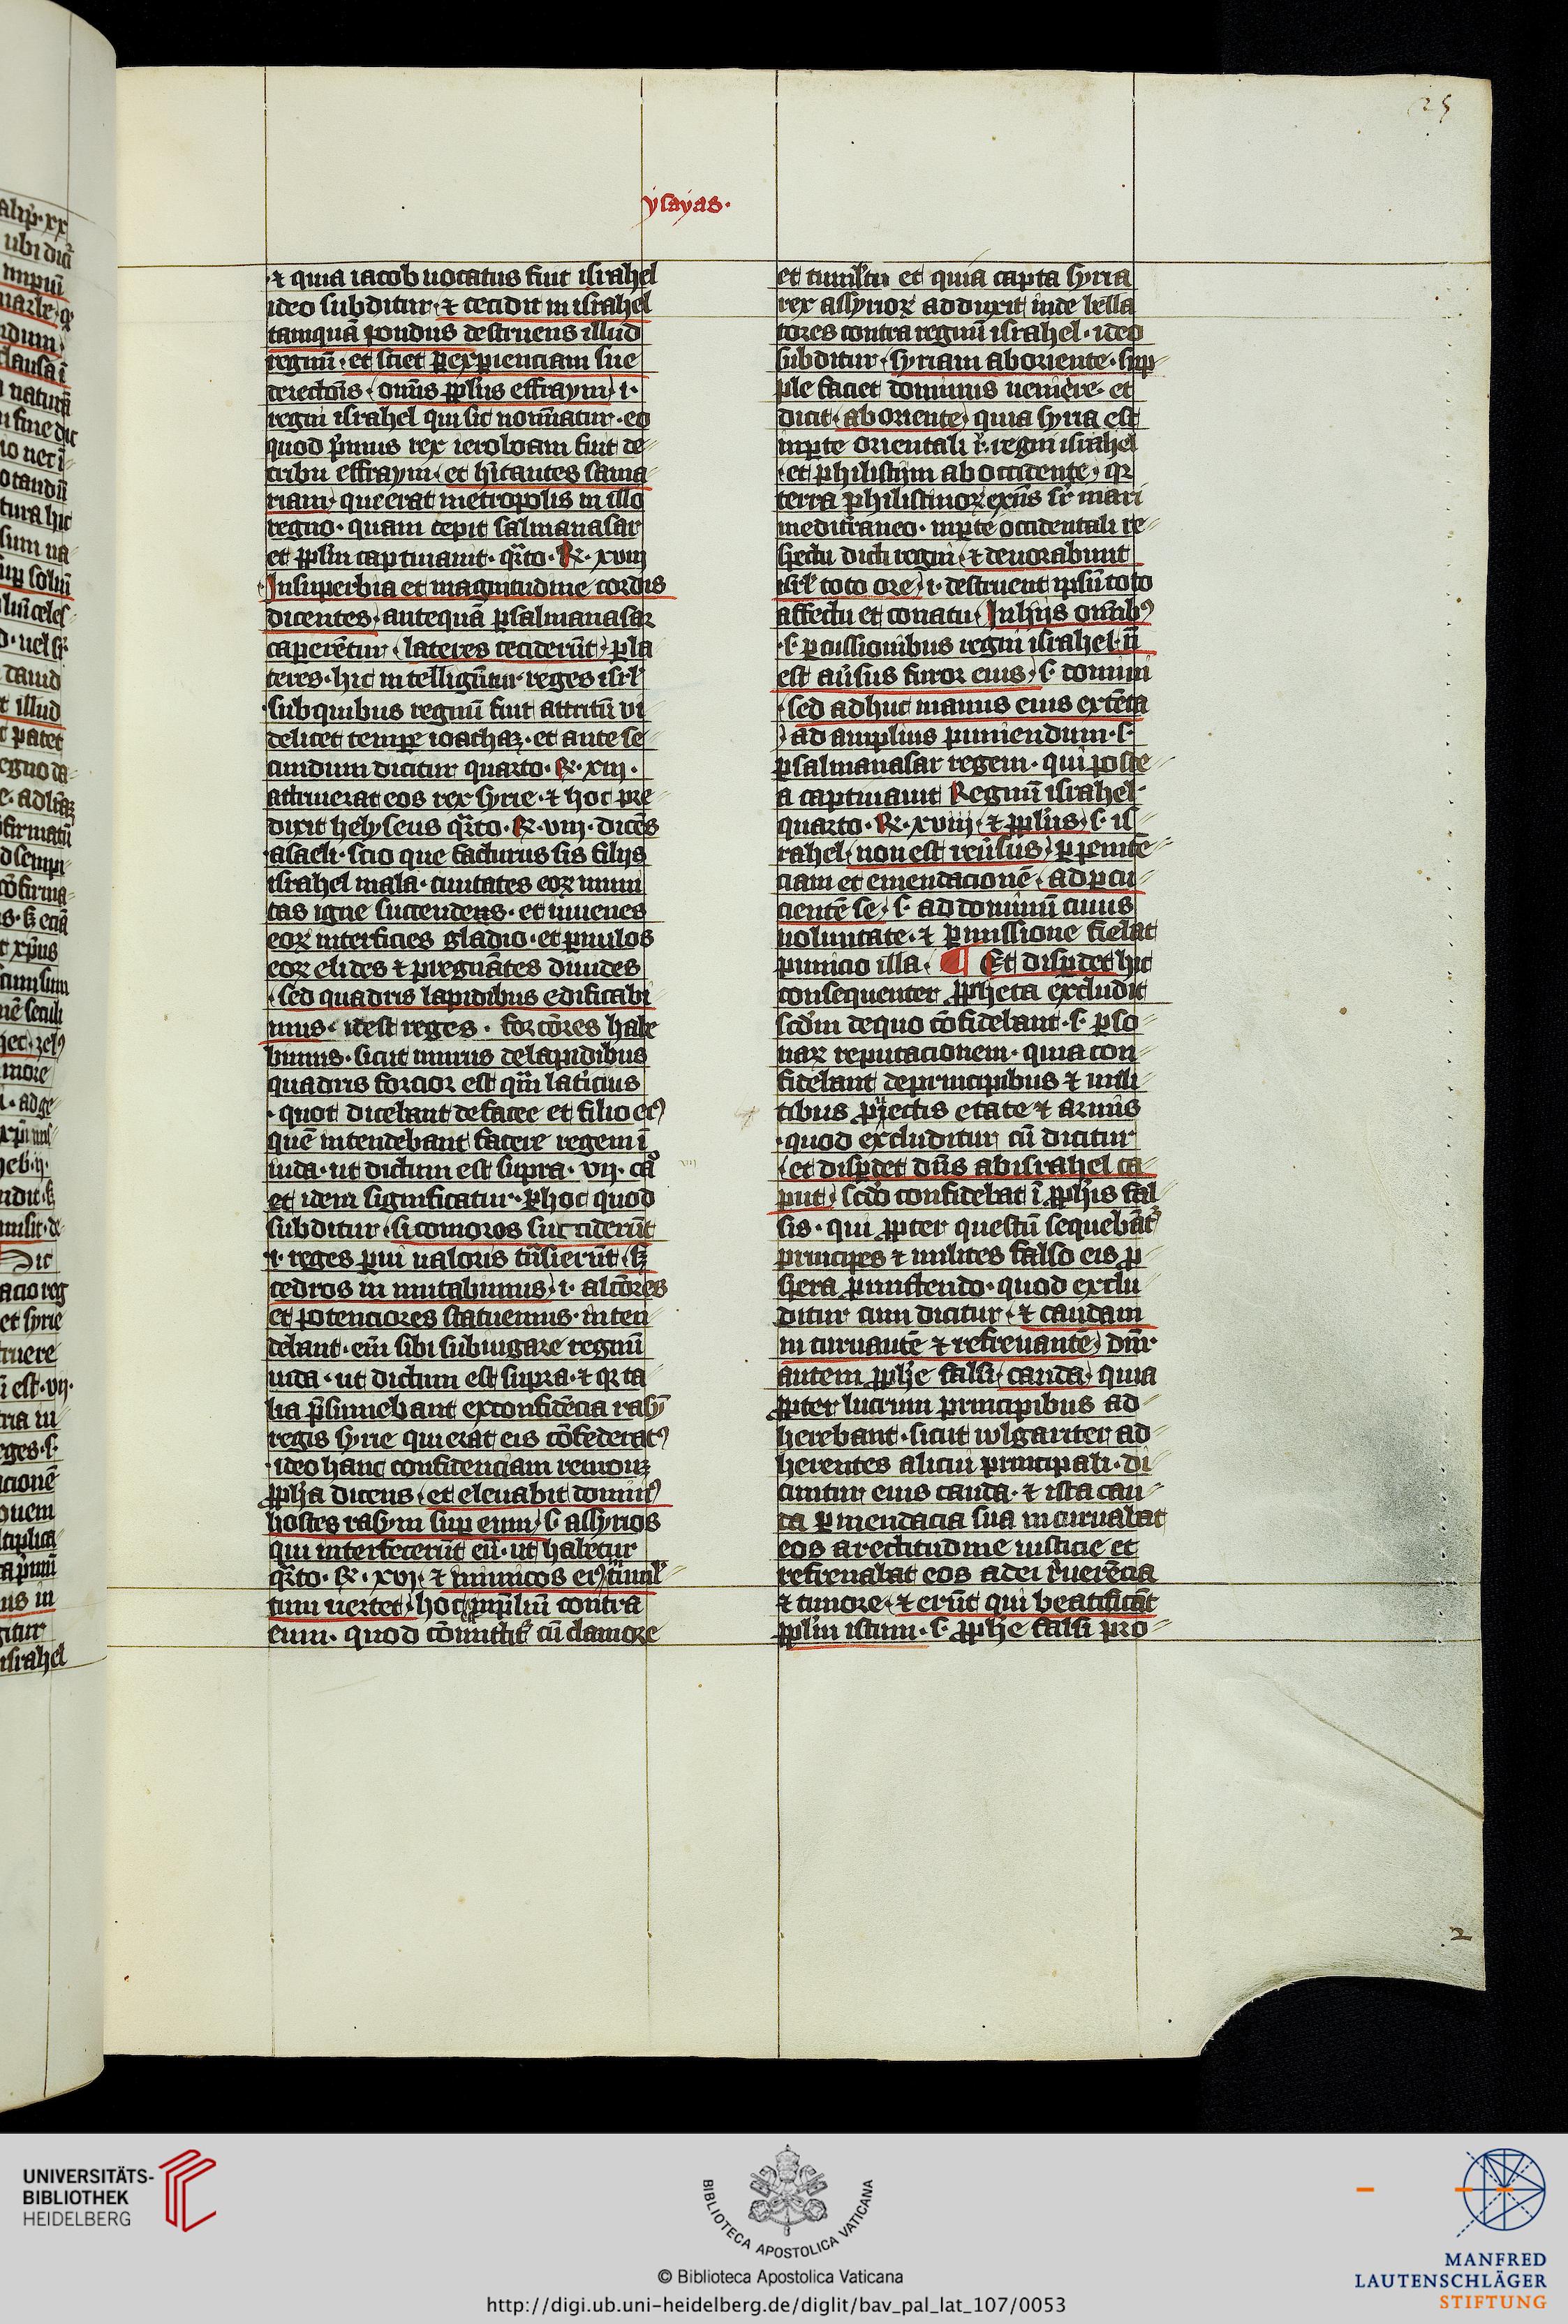 25
ysayas·
& quia iacob uocatus fuit israhel
ideo subditur · & cecidit in israhel
tamquā pondus destruens illud
regnū · et sciet ꝑ expienciam sue
omīs ppl̄us effraym · i·
regni israhel qui sic noīnatur · eo
quod p̄mus rex ieroboam fuit de
tribu effraym · et hītantes sama
riam · que erat metropolis in illo
regno · quam cepit salmanasar
et ppl̄m captiuauit · qͣrto · R · xviij
In superbia et magnitudine cordis
dicentes · antequā ꝑ salmanasar
caperētur · lateres ceciderūt · ꝑ la
teres · hic intelligūtur reges isrl̄
sub quibus regnū fuit attritū vi
delicet tempe ioachaz · et ante se
cundum dicitur quarto · R · xiij ·
attriuerat eos rex syrie · & hoc pre
dixit helyseus qͣrto · R · viij · dicēs
asaeli · scio que facturus sis filijs
israhel mala · ciuitates eoꝝ muni
tas igne succendens · et iuuenes
eoꝝ interficies gladio · et ꝑuulos
eoꝝ elides & pregnātes diuides
sed quadris lapidibus edificabi
mus · idest reges · forciores habe
bimus · sicut murus de lapidibus
quadris forcior est qm̄ latericius
· quot dicebant de facee et filio eiꝰ
quē intendebant facere regem ī
iuda · ut dictum est supra · vij · caͦ
et idem significatur · ꝑ hoc quod
subditur · sicomoros succiderūt
i· reges ꝑui ualoris · sꝫ
cedros inmutabimus · i· alciores
et potenciores statuemus · inten
debant · enī sibi subiugare regnū
iuda · ut dictum est supra · & qꝛ ta
lia p̄sumebant ex confidēcia rasȳ
regis syrie qui erat eis cōfederatꝰ
· ideo hanc confidenciam remouꝫ
ppha dicens · et eleuabit dominꝰ
hostes rasym sup eum · s· assyrios
qui interfecerūt eū · ut habetur
qͣrto · R · xvj · & inimicos eiꝰ ī tumul
tum uertet · hoc contra
eum · quod cōmittit cū clamore
et tumltu et quia capta syria
rex assyrioꝝ adduxit inde bella
tores contra regnū israhel · ideo
subditur · syriam ab oriente · supp
ple faciet dominus uenire · et
dicit · ab oriente · quia syria est
in ꝑte orientali r̄· regni israhel
· et philistijm ab occidente · qꝛ
terra philistinoꝝ exn̄s sr̄ mari
mediterraneo · in ꝑte occidentali re
spectu dicti regni · & deuorabunt
isrl̄ toto ore · i· destruent ipsū toto
affectu et conatu · In hijs omībꝰ
· s· ꝑcussionibus regni israhel · nō
est au͛sus furor eius · s· domini
· sed adhuc manus eius extēta
· ad amplius puniendum · s·
ꝑ salmanasar regem · qui poste
a captiuauit Regnū israhel ·
quarto · R · xviij · & ppl̄us · s· is
rahel · non est reu͛sus · ꝑ penite
ciam et emendacionē · ad ꝑcu
cientē se · s· ad dominū cuius
uoluntate · & ꝑmissione fiebat
punicio illa · ¶ Et disꝑdet hic
consequenter ppheta excludit
scd̄m de quo cōfidebant · s· ꝑso
naꝝ reputacionem · quia con
fidebant de principibus & mili
tibus prouectis etate & armis
· quod excluditur cū dicitur
· et disꝑdet dn̄s ab israhel ca
put · scdō confidebāt ī pphis fal
sis · qui ppter questū sequebātꝛ
principes & milites falso eis ꝓ
spera ꝓmittendo · quod exclu
ditur cum dicitur · & caudam
incuruantē & refrenantē · dn̄r
autem pphe falsi · cauda · quia
ppter lucrum principibus ad
herebant · sicut wlgariter ad
herentes alicui principali · di
cuntur eius cauda · & ista cau
da ꝑ mendacia sua incuruabat
eos a rectitudine iusticie et
refrenabat eos a dei reuerēcia
& timore · & erūt qui beatificāt
ppl̄m istum · s· pphe falsi pro
2
UNIVERSITÄTS-
BIBLIOTHEK
HEIDELBERG
BIBLIOTECA APOSTOLICA VATICANA
© Biblioteca Apostolica Vaticana
http://digi.ub.uni-heidelberg.de/diglit/bav_pal_lat_107/0053
MANFRED
LAUTENSCHLÄGER
STIFTUNG